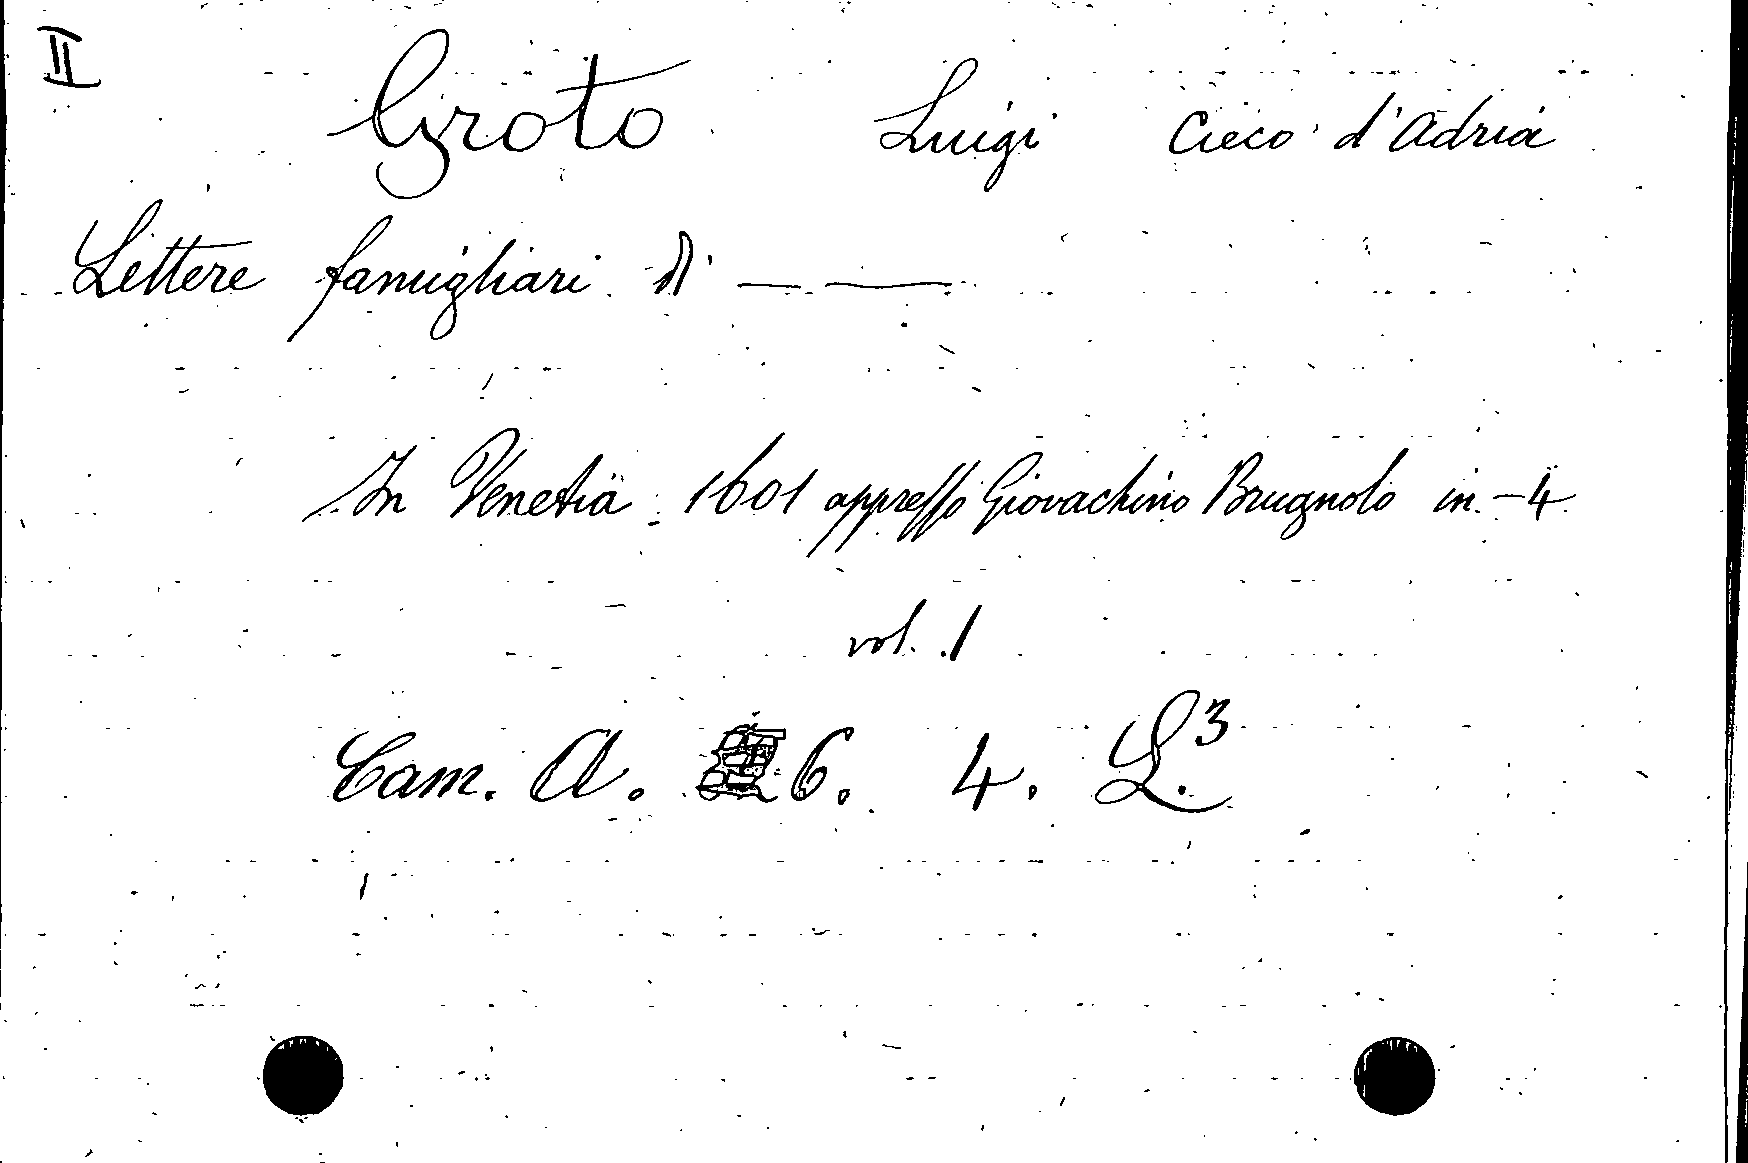 II
Groto Luigi Cieco d'Adria
Lettere famigliari di — —
In Venetia 1601 appresso Giovachino Brugnolo in-4
vol. 1
Cam. A. 6. 4. L.3